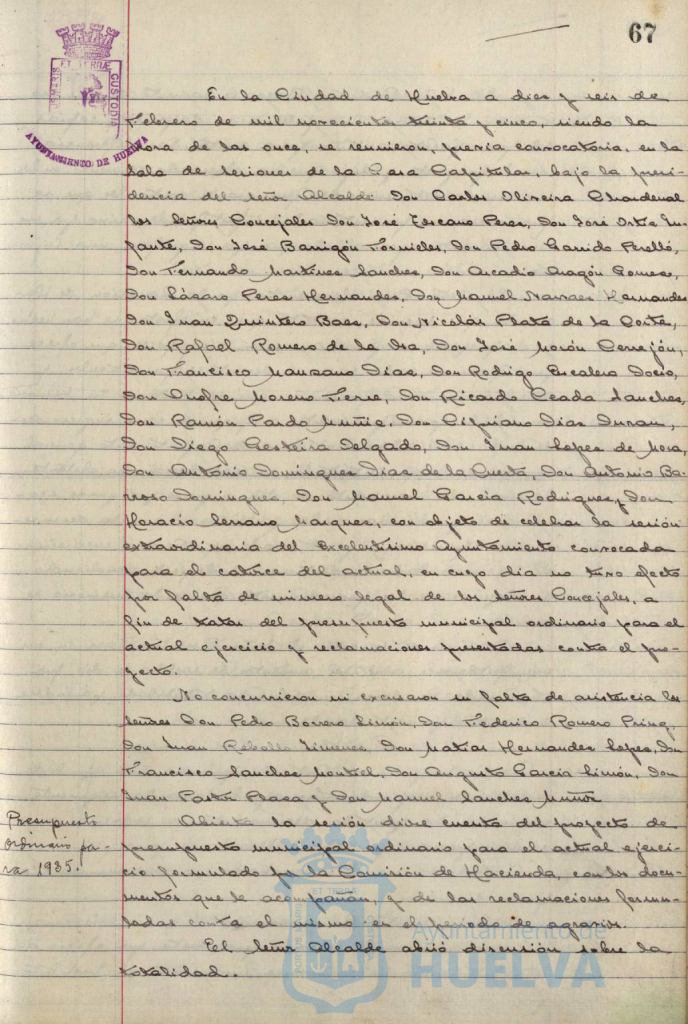 67
ET TERRÆ
CUSTODIA
AYUNTAMIENTO DE HUELVA
En la Ciudad de Huelva a diez y seis de
Febrero de mil novecientos treinta y cinco, siendo la
hora de las once, se reunieron, previa convocatoria, en la
Sala de Sesiones de la Casa Capitular, bajo la presi-
dencia del Señor Alcalde Don Carlos Oliveira Chardenal
los Señores Concejales Don José Lescano Perez, Don José Ortiz In-
fante, Don José Barrigón Fornieles, Don Pedro Garrido Perelló,
Don Fernando Martinez Sanchez, Don Arcadio Aragón Gomez,
Don Lázaro Perez Hernandez, Don Manuel Narvaez Hernandez
Don Juan Quintero Baez, Don Nicolás Plata de la Corte,
Don Rafael Romero de la Osa, Don José Morón Cerrejón,
Don Francisco Manzano Diaz, Don Rodrigo Escalera Docio,
Don Onofre Moreno Ferre, Don Ricardo Ceada Sanchez,
Don Ramón Pardo Muñiz, Don Cipriano Diaz Duran,
Don Diego Gesteira Delgado, Don Juan Lopez de Mora,
Don Antonio Dominguez Diaz de la Cuesta, Don Antonio Ba-
rroso Dominguez, Don Manuel Garcia Rodriguez, y Don
Horacio Serrano Marquez, con objeto de celebrar la sesión
extraordinaria del Excelentísimo Ayuntamiento convocada
para el catorce del actual, en cuyo dia no tuvo efecto
por falta de número legal de los Señores Concejales, a
fin de tratar del presupuesto municipal ordinario para el
actual ejercicio y reclamaciones presentadas contra el pro-
yecto.
No concurrieron ni excusaron su falta de asistencia los
Señores Don Pedro Borrero Limón, Don Federico Romero Prinz,
Don Juan Rebollo Jimenez Don Matias Hernandez Lopez, Don
Francisco Sanchez Montiel, Don Augusto Garcia Limón, Don
Juan Pastor Plaza y Don Manuel Sanchez Muñoz
Presupuesto
ordinario pa-
ra 1935.
Abierta la sesión dióse cuenta del proyecto de
presupuesto municipal ordinario para el actual ejerci-
cio formulado por la Comisión de Hacienda, con los docu-
mentos que le acompañan, y de las reclamaciones formu-
ladas contra el mismo en el periodo de agravios.
El Señor Alcalde abrió discusión sobre la
totalidad.
Ayuntamiento de
HUELVA